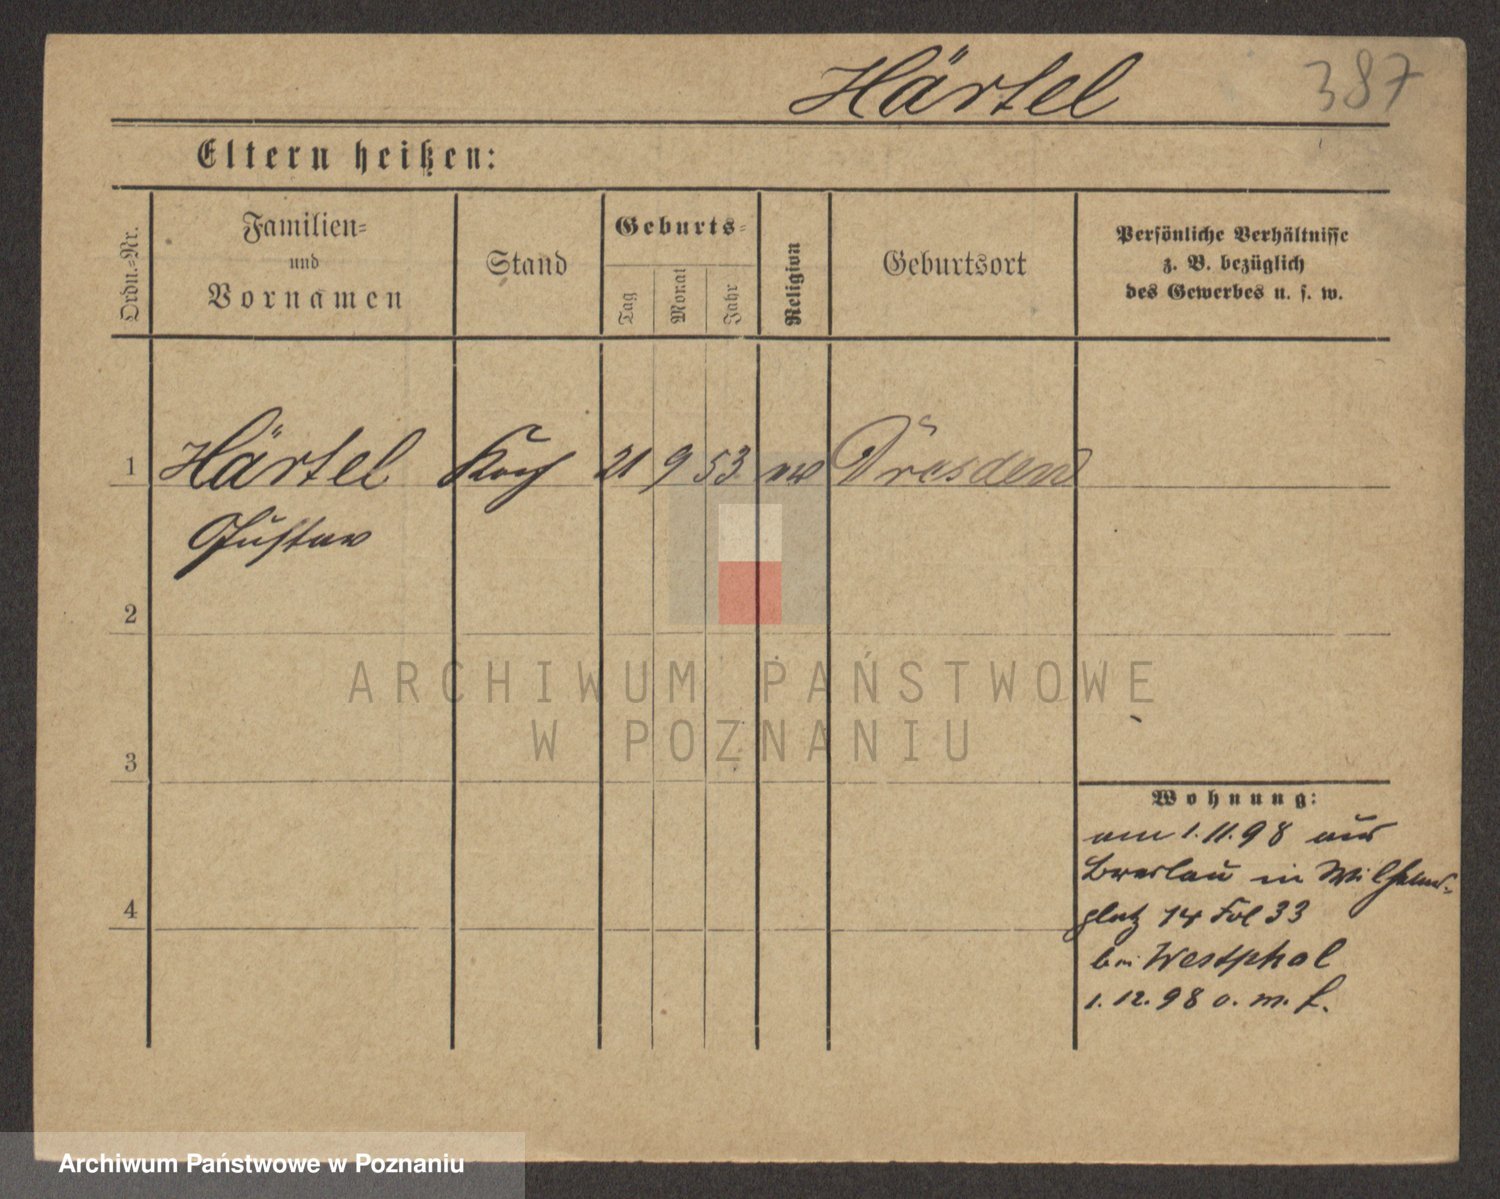 Härtel 387
Eltern heißen:
Ordn.-Nr.
Familien-
und
Vornamen
Stand
Geburts-
Tag
Monat
Jahr
Religion
Geburtsort
Persönliche Verhältnisse
z. B. bezüglich
des Gewerbes u. s. w.
1 Härtel Koch 21 9 53 ev Dresden
Gustav
2
ARCHIWUM PAŃSTWOWE
W POZNANIU
3
Wohnung:
am 1.11.98 aus
Breslau in Wilhelms-
platz 14 Fol 33
4
bei Westphal
1.12.98 o. m. f.
Archiwum Państwowe w Poznaniu